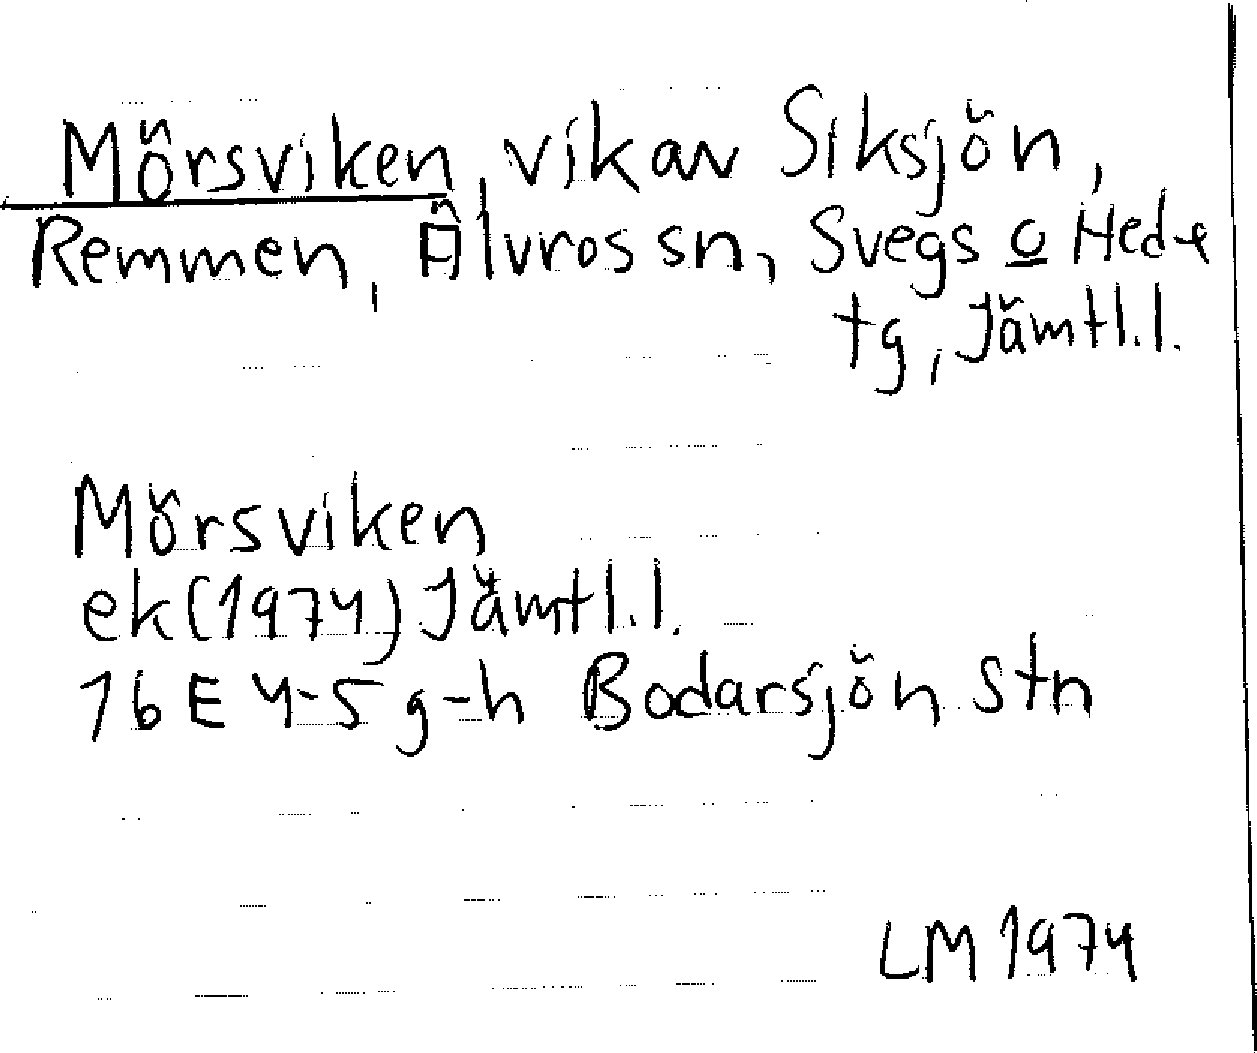 Mörsviken, vik av Siksjön,
Remmen, Älvros sn, Svegs o Hede
tg, Jämtl.l.
Mörsviken
ek (1974) Jämtl.l.
16E 4-5 g-h Bodarsjön stn
LM 1974